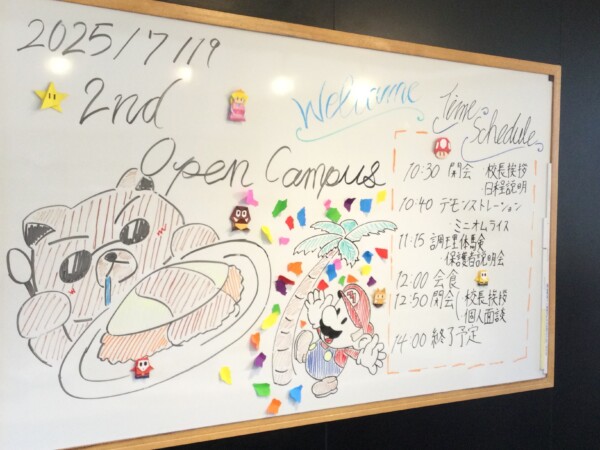 2025/7/19
2nd
Open Campus
Welcome
Time
Schedule
10:30 開会 校長挨拶
日程説明
10:40 デモンストレーション
ミニオムライス
11:15 調理体験
保護者説明会
12:00 会食
12:50 閉会 校長挨拶
個人面談
14:00 終了予定
M